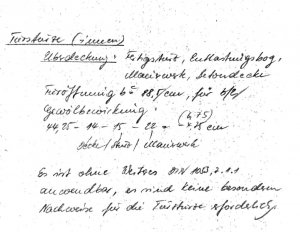 Türstürze (innen)
Überdeckung: Fertigsturz, Entlastungsbog,
Mauerwerk, Betondecke
Türöffnung b = 88,5 cm, für
Gewölbewirkung: (4,75)
44,25 - 14 - 15 - 22 = cm
Decke / Sturz / Mauerwerk
Es ist ohne Weiteres DIN 1053, 2.1.1
anwendbar, es sind keine besonderen
Nachweise für die Türstürze erforderlich.